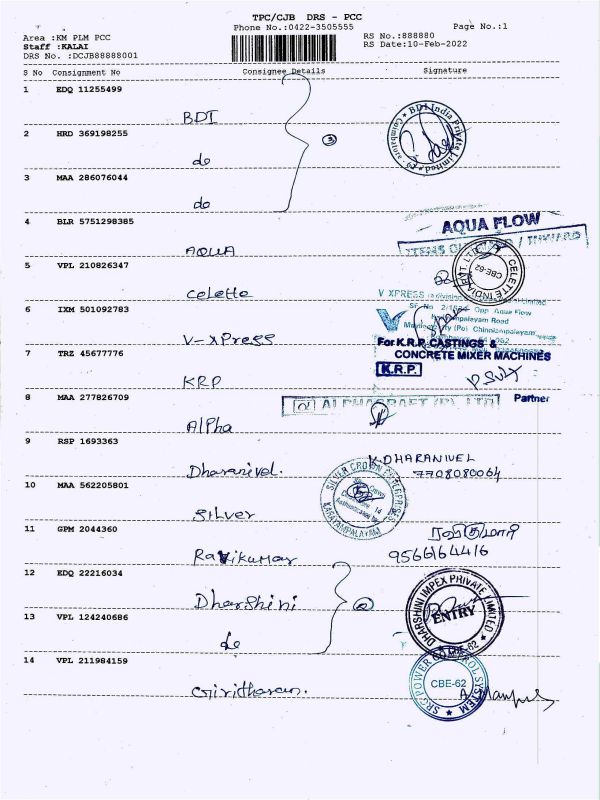 TPC/CJB DRS - PCC
Phone No.:0422-3505555
Page No.:1
Area :KM PLM PCC
Staff :KALAI
DRS No. :DCJB88888001
RS No.:888880
RS Date:10-Feb-2022
S No Consignment No Consignee Details Signature
1 EDQ 11255499
BDI
BDI India Private Limited
Coimbatore
2 HRD 369198255
do
3
3 MAA 286076044
do
4 BLR 5751298385
AQUA
AQUA FLOW
5 VPL 210826347
Celette
CELETTE INDIA PVT LTD
CBE-62
6 IXM 501092783
V-XPress
V XPRESS
Opp Aqua Flow
Road
Chinniampalayam
7 TRZ 45677776
KRP
For K.R.P. CASTINGS &
CONCRETE MIXER MACHINES
K.R.P.
Partner
8 MAA 277826709
Alpha
ALPHACRAFT (P) LTD
9 RSP 1693363
Dharanivel.
K.DHARANIVEL
7708080064
10 MAA 562205801
Silver
SILVER CROWN ENTERPRISES
KARAYAMPALAYAM
11 GPM 2044360
Ravikumar
ரவிகுமார்
9566164416
12 EDQ 22216034
Dharshini
2
DHARSHINI IMPEX PRIVATE LIMITED
ENTRY
CBE-62
13 VPL 124240686
do
14 VPL 211984159
Giritharan.
SRG POWER CONTROL SYSTEM
CBE-62